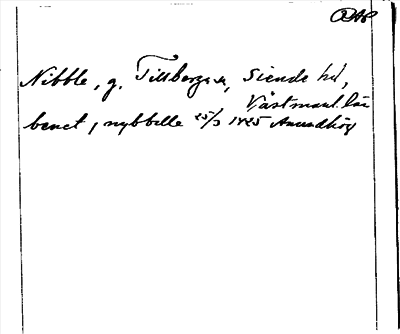 OAP
Nibble, g. Tillberga sn, Siende hd,
Västmanl. län
benct, nybbelle 25/3 1425 Anundhög